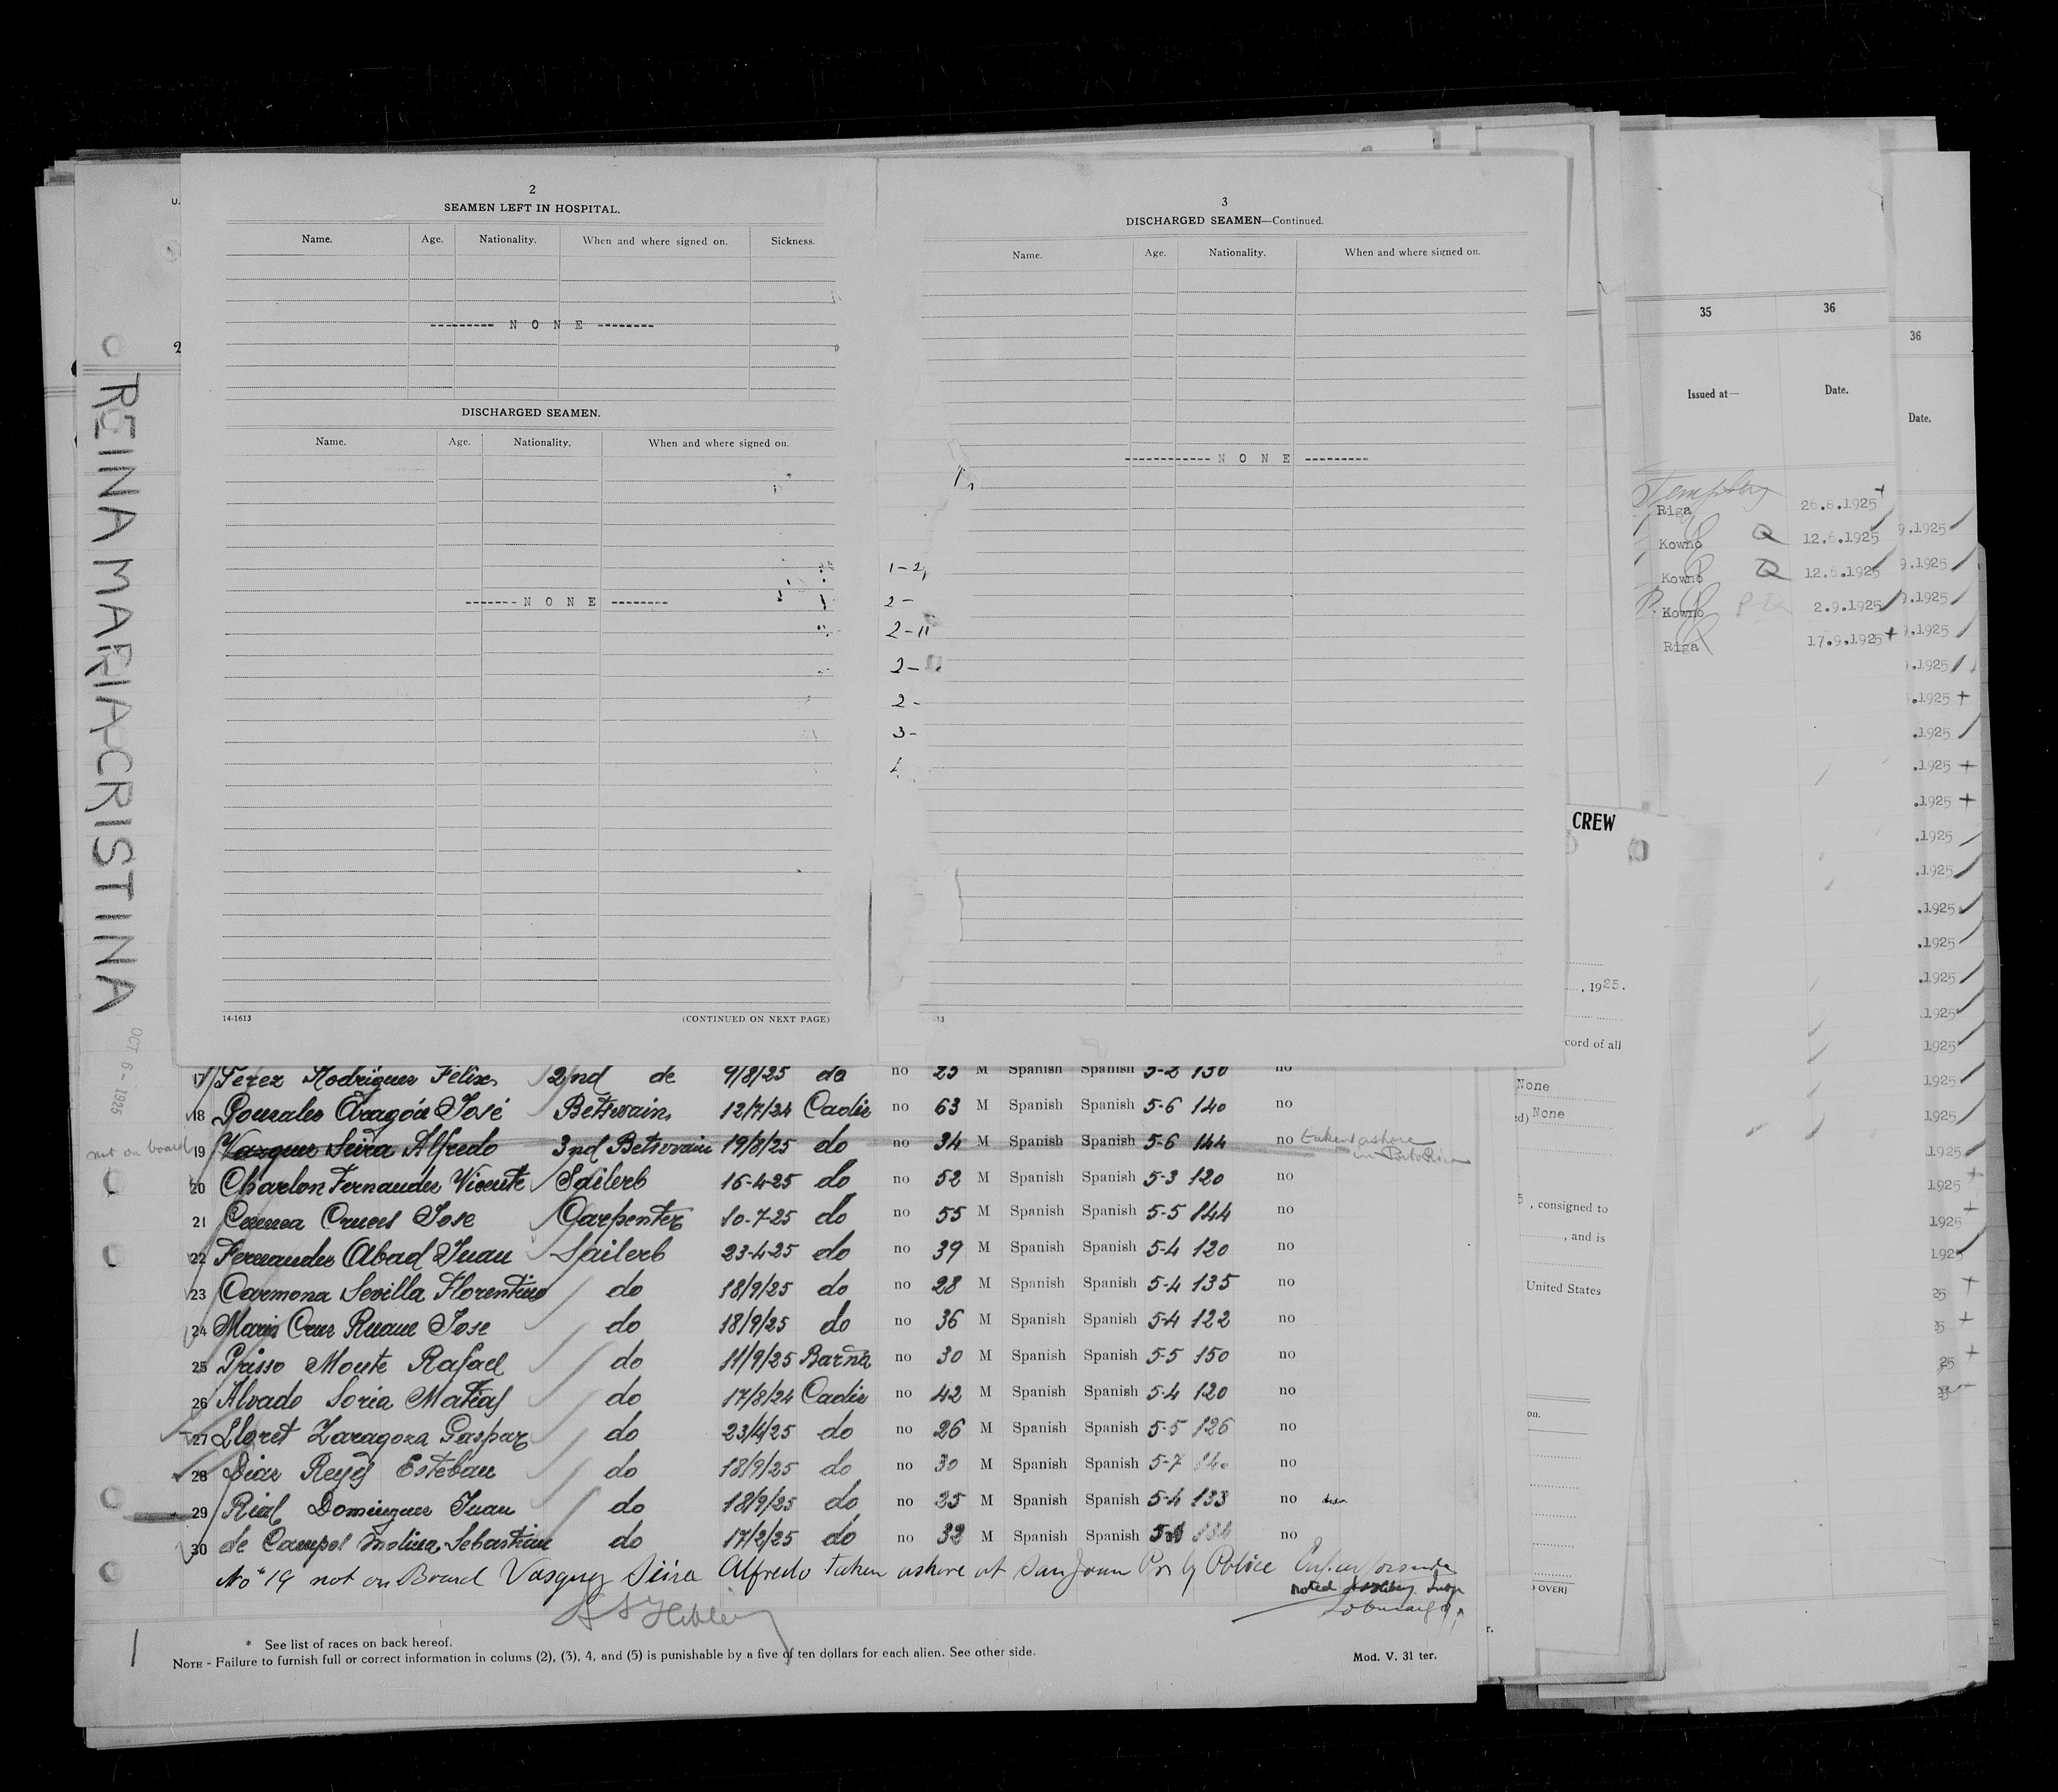 2
SEAMEN LEFT IN HOSPITAL.
Name. Age. Nationality. When and where signed on. Sickness.
--------- N O N E --------
DISCHARGED SEAMEN.
Name. Age. Nationality. When and where signed on.
------- N O N E --------
14-1613 (CONTINUED ON NEXT PAGE)
3
DISCHARGED SEAMEN—Continued.
Name. Age. Nationality. When and where signed on.
------------ N O N E ---------
1-2
2-
2-11
2-
2-
3-
REINA MARIA-CRISTINA
OCT 6 - 1925
17 Perez Rodriguez Felix 2nd de 9/8/25 do no 25 M Spanish Spanish 5-2 130 no
18 Gonzales Aragón José Betswain 12/7/24 Cadiz no 63 M Spanish Spanish 5-6 140 no
not on board 19 Vazquez Seira Alfredo 3nd Betswain 19/8/25 do no 34 M Spanish Spanish 5-6 144 no taken ashore
in Porto Rico
20 Charlon Fernandez Vicente Sailerb 16-4-25 do no 52 M Spanish Spanish 5-3 120 no
21 Jose Carpenter 10-7-25 do no 55 M Spanish Spanish 5-5 144 no
22 Fernandez Abad Juan Sailerb 23-4-25 do no 39 M Spanish Spanish 5-4 120 no
23 Carmona Sevilla Florentino do 18/9/25 do no 28 M Spanish Spanish 5-4 135 no
24 Cruz Jose do 18/9/25 do no 36 M Spanish Spanish 5-4 122 no
25 Monte Rafael do 11/9/25 Barna no 30 M Spanish Spanish 5-5 150 no
26 Alvado Soria Matias do 17/8/24 Cadiz no 42 M Spanish Spanish 5-4 120 no
27 Lloret Zaragoza Gaspar do 23/4/25 do no 26 M Spanish Spanish 5-5 126 no
28 Diaz Reyes Esteban do 18/9/25 do no 30 M Spanish Spanish 5-7 140 no
29 Rial Dominguez Juan do 18/9/25 do no 25 M Spanish Spanish 5-4 133 no
30 de Campos Molina Sebastian do 17/2/25 do no 32 M Spanish Spanish no
No 19 not on Board Vasquez Seira Alfredo taken ashore at San Juan P.R. by Police
noted
* See list of races on back hereof.
NOTE - Failure to furnish full or correct information in colums (2), (3), 4, and (5) is punishable by a five of ten dollars for each alien. See other side.
Mod. V. 31 ter.
CREW
, 1925.
cord of all
None
ed) None
5 , consigned to
, and is
United States
on.
OVER)
35 36
Issued at— Date.
Riga 26.8.1925
Kowno 12.6.1925
Kowno 12.6.1925
Kowno 2.9.1925
Riga 17.9.1925
36
Date.
9.1925
9.1925
.1925
9.1925
.1925
.1925
.1925
.1925
.1925
.1925
.1925
.1925
.1925
.1925
.1925
1925
1925
1925
1925
1925
1925
1925
25
25
25
25